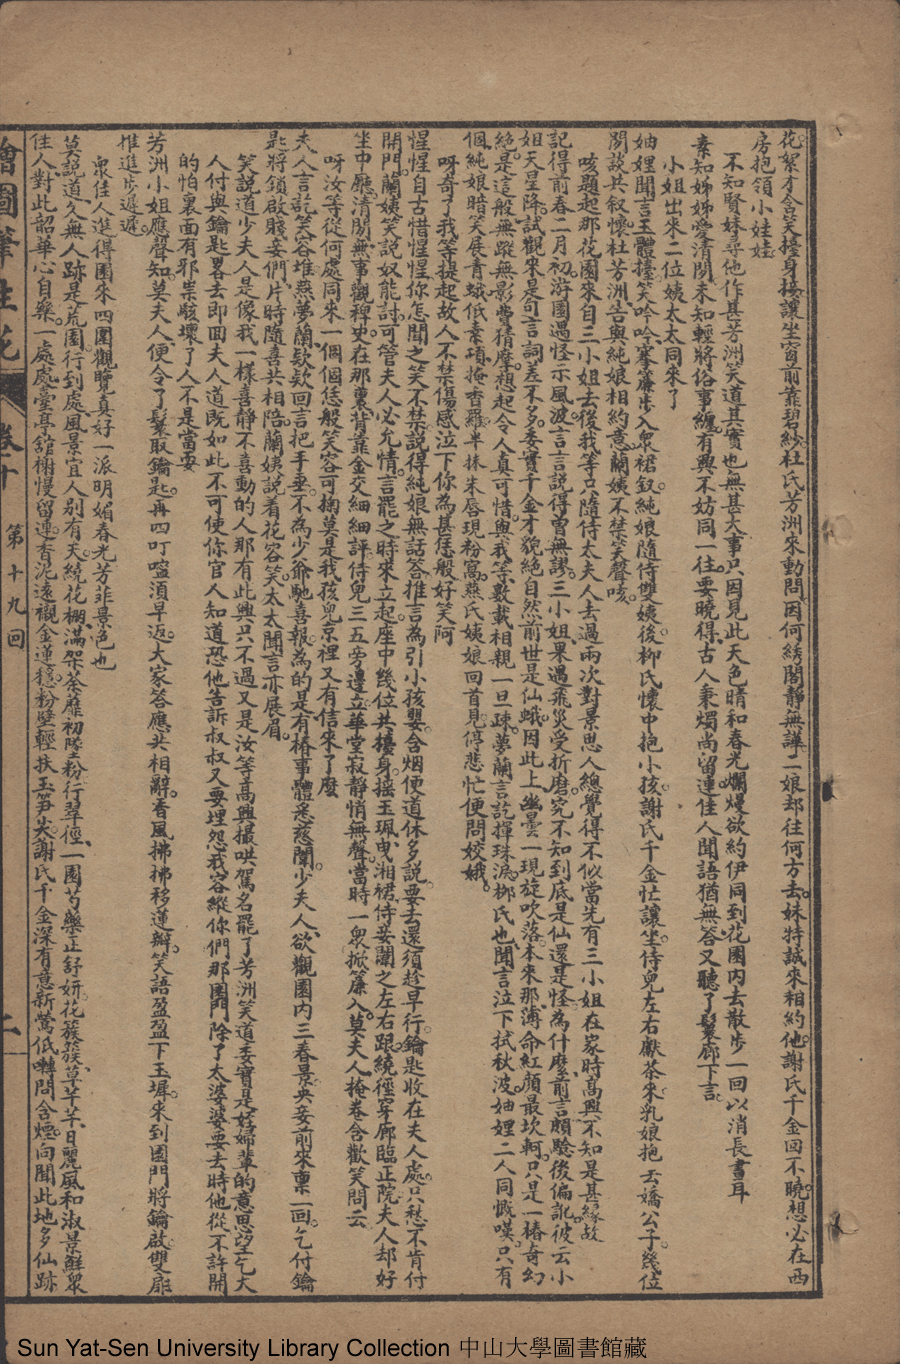 花絮才含笑擡身接讓坐窗前靠碧紗杜氏芳洲來動問因何綉閣靜無譁二娘却往何方去妹特誠來相約他謝氏千金回不曉想必在西
房抱領小娃娃
不知賢妹尋他作甚芳洲笑道其實也無甚大事只因見此天色晴和春光爛熳欲約伊同到花園内去散步一回以消長晝耳
素知姊姊愛清閒未知輕將俗事纏有興不妨同一往要曉得古人秉燭尚留連佳人聞語猶無答又聽了鬟廊下言
小姐出來二位姨太太同來了
妯娌聞言玉體擡笑吟吟搴簾步入衆裙釵純娘隨侍雙姨後柳氏懷中抱小孩謝氏千金忙讓坐侍兒左右獻茶來乳娘抱去嬌公子幾位
閒談共叙懷杜芳洲告與純娘相約意蘭姨不禁笑聲咳
咳題起那花園來自三小姐去後我等只隨侍太夫人去過兩次對景思人總覺得不似當先有三小姐在家時高興不知是甚緣故
記得前春二月初游園遇怪示風波言言說得曾無謬三小姐果遇飛災受折磨究不知到底是仙還是怪為什麼前言頗驗後偏訛彼云小
姐天星降試觀來是句言詞差不多委實千金才貌絕自然前世是仙娥因此上幽曇一現旋吹落本來那薄命紅顏最坎軻只是一樁奇幻
絕是這般無蹤無影費猜摩想起令人真可惜與我等數載相親一旦疎夢蘭言訖揮珠淚柳氏也聞言泣下拭秋波妯娌二人同慨嘆只有
個純娘暗笑展青蛾低素項掩香羅半抹朱唇現粉窩燕氏姨娘回首見停悲忙便問姣娥
呀奇了我等提起故人不禁傷感泣下你為甚恁般好笑阿
惺惺自古惜惺惺你怎聞之笑不禁說得純娘無話答推言為引小孩嬰含烟便道休多說要去還須趁早行鑰匙收在夫人處只愁不肯付
開門蘭姨笑說奴能討可管夫人必允情言罷之時來立起座中幾位共擡身搖玉珮曳湘裙侍妾蘭之左右跟繞徑穿廊臨正院夫人却好
坐中廳清閒無事觀稗史在那裏背靠金交細細評侍兒三五旁邊立華堂寂靜悄無聲當時一衆掀簾入莫夫人掩卷含歡笑問云
呀汝等從何處同來一個個恁般笑容可掬莫是我孩兒京裡又有信來了麼
夫人言訖笑容堆燕夢蘭欵欵回言把手垂不為少爺馳喜報為的是有樁事體乞慈闈少夫人欲觀園内三春景央妾前來稟一回乞付鑰
匙將鎖啟賤妾們片時隨喜共相陪蘭姨說着花容笑太太聞言亦展眉
笑說道少夫人是像我一樣喜靜不喜動的人那有此興只不過又是汝等高興撮哄駕名罷了芳洲笑道委實是媳婦輩的意思望乞大
人付與鑰匙畧去即回夫人道既如此不可使你官人知道恐他告訴叔叔又要埋怨我容縱你們那園門除了太婆婆要去時他從不許開
的怕裏面有邪祟駭壞了人不是當耍
芳洲小姐應聲知莫夫人便令了鬟取鑰匙再四叮嚀須早返大家答應共相辭香風拂拂移蓮瓣笑語盈盈下玉墀來到園門將鑰啟雙扉
推進步遲遲
衆佳人進得園來四圍觀覽真好一派明媚春光芳菲景色也
莫說道久無人跡是荒園行到處風景宜人别有天繞花棚滿架荼蘼初墜粉行翠徑一園芍藥正舒妍花簇簇草芊芊日麗風和淑景鮮衆
佳人對此韶華心自樂一處處臺亭舘榭慢留連香泥逐襯金蓮穩粉壁輕扶玉笋尖謝氏千金深有意新鶯低囀問含煙向聞此地多仙跡
繪圖筆生花
卷十
第十九回
二
Sun Yat-Sen University Library Collection 中山大學圖書館藏